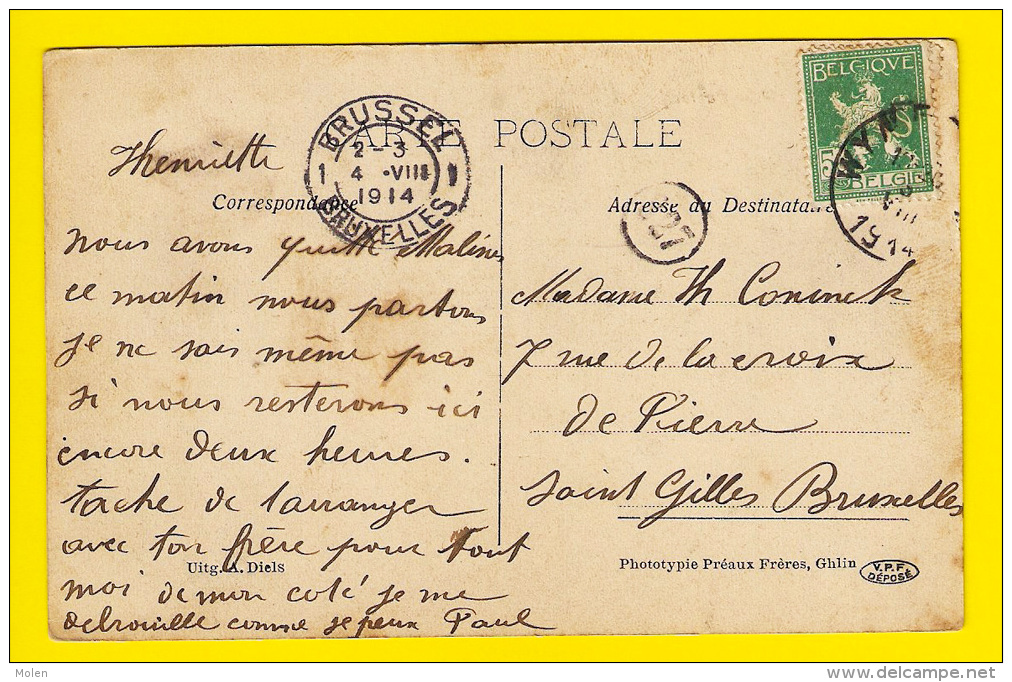 CARTE POSTALE
BRUSSEL
1 2-3 1
4 -VIII
1914
BRUXELLES
BELGIQUE
5
BELGIE
WYN
1914
37
Correspondance
Adresse du Destinataire
Henriette
nous avons quitté Malines
ce matin nous partons
je ne sais même pas
si nous resterons ici
encore deux heures.
tache de t'arranger
avec ton frère pour tout
moi de mon coté je me
debrouille comme je peux Paul
Madame Th Coninck
7 rue de la croix
de Pierre
Saint Gilles Bruxelles
Uitg. A. Diels
Phototypie Préaux Frères, Ghlin
V.P.F
DÉPOSÉ
Molen
http://www.delcampe.net